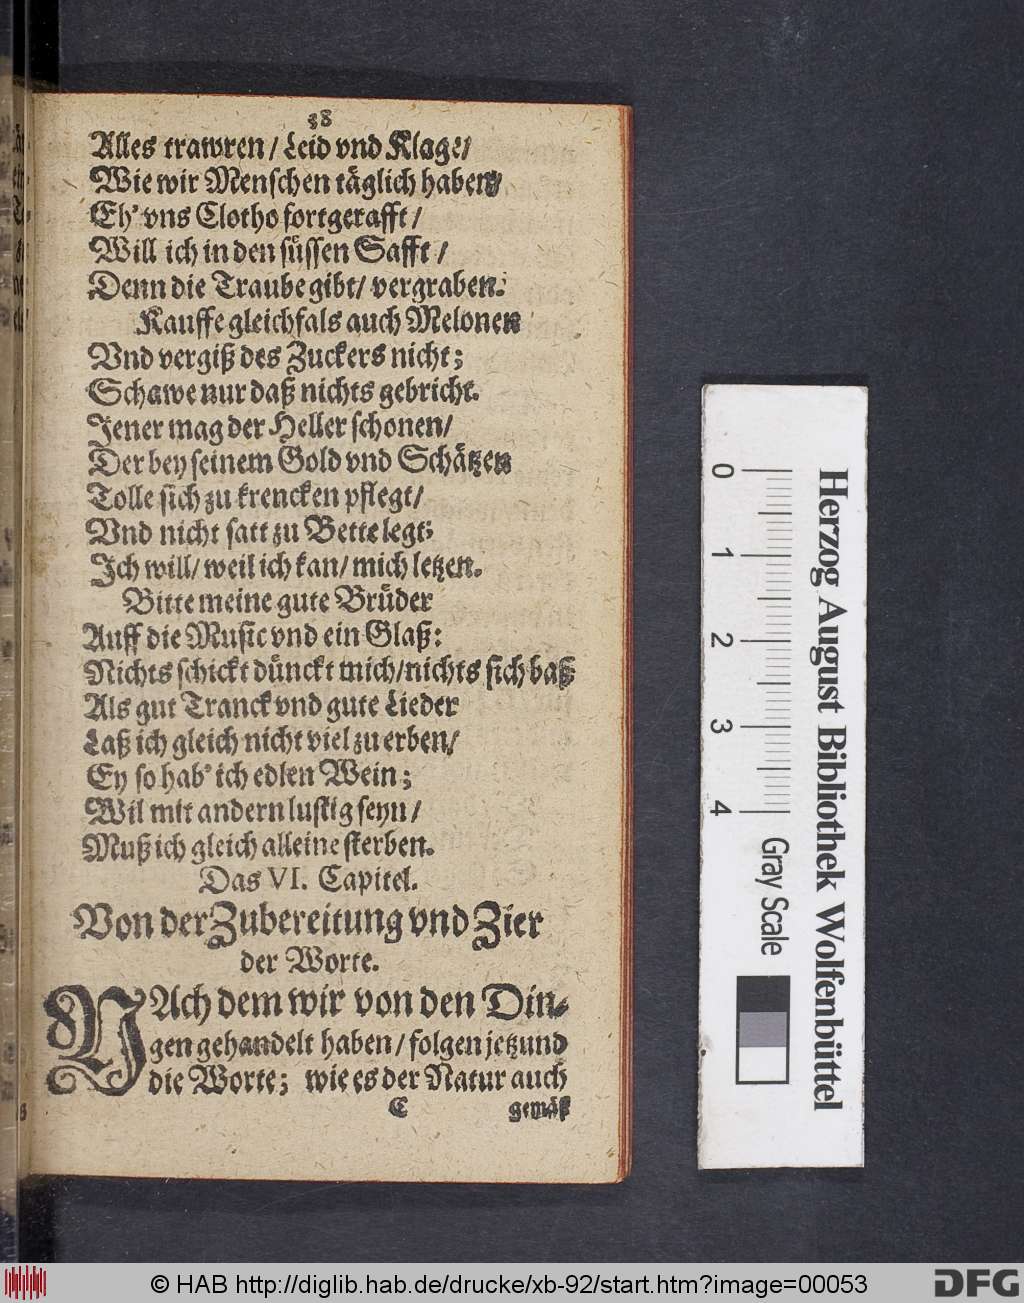 38
Alles trawren / Leid vnd Klage /
Wie wir Menschen täglich haben /
Eh' vns Clotho fortgerafft /
Will ich in den süssen Safft /
Denn die Traube gibt / vergraben.
Kauffe gleichfals auch Melonen
Vnd vergiß des Zuckers nicht;
Schawe nur daß nichts gebricht.
Jener mag der Heller schonen /
Der bey seinem Gold vnd Schätzen
Tolle sich zu krencken pflegt /
Vnd nicht satt zu Bette legt;
Ich will / weil ich kan / mich letzen.
Bitte meine gute Brüder
Auff die Music vnd ein Glaß:
Nichts schickt dünckt mich / nichts sich baß
Als gut Tranck vnd gute Lieder
Laß ich gleich nicht viel zu erben /
Ey so hab' ich edlen Wein;
Wil mit andern lustig seyn /
Muß ich gleich alleine sterben.
Das VI. Capitel.
Von der Zubereitung vnd Zier
der Worte.
NAch dem wir von den Din-
gen gehandelt haben / folgen jetzund
die Worte; wie es der Natur auch
C gemäß
Herzog August Bibliothek Wolfenbüttel
0 1 2 3 4 Gray Scale
© HAB http://diglib.hab.de/drucke/xb-92/start.htm?image=00053
DFG